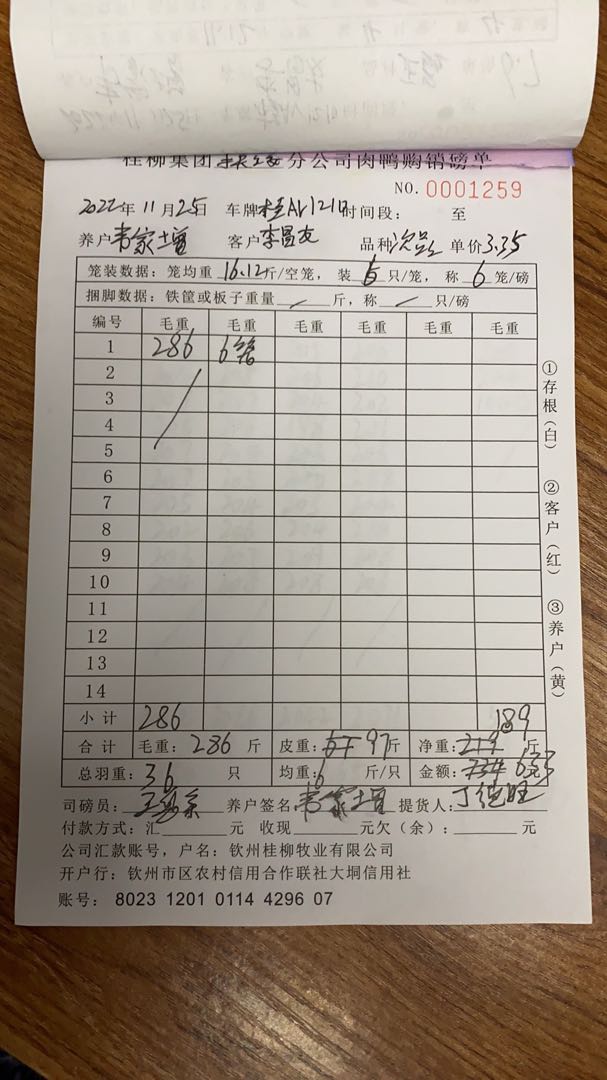 桂柳集团 分公司肉鸭购销磅单
NO. 0001259
2022年11月25日 车牌桂A 时间段: 至
养户 韦家增 客户 李昌友 品种 次品 单价3.35
笼装数据: 笼均重 16.12 斤/空笼, 装 6 只/笼, 称 6 笼/磅
捆脚数据: 铁筐或板子重量 / 斤, 称 / 只/磅
编号 毛重 毛重 毛重 毛重 毛重 毛重
1 286 6笼
2
3
4
5
6
7
8
9
10
11
12
13
14
小计 286 189
合计 毛重: 286 斤 皮重: 97斤 净重: 斤
总羽重: 36 只 均重: 6 斤/只 金额: 元
司磅员: 养户签名 韦家增 提货人:
付款方式: 汇 元 收现 元欠(余): 元
公司汇款账号, 户名: 钦州桂柳牧业有限公司
开户行: 钦州市区农村信用合作联社大垌信用社
账号: 8023 1201 0114 4296 07
①存根(白)
②客户(红)
③养户(黄)